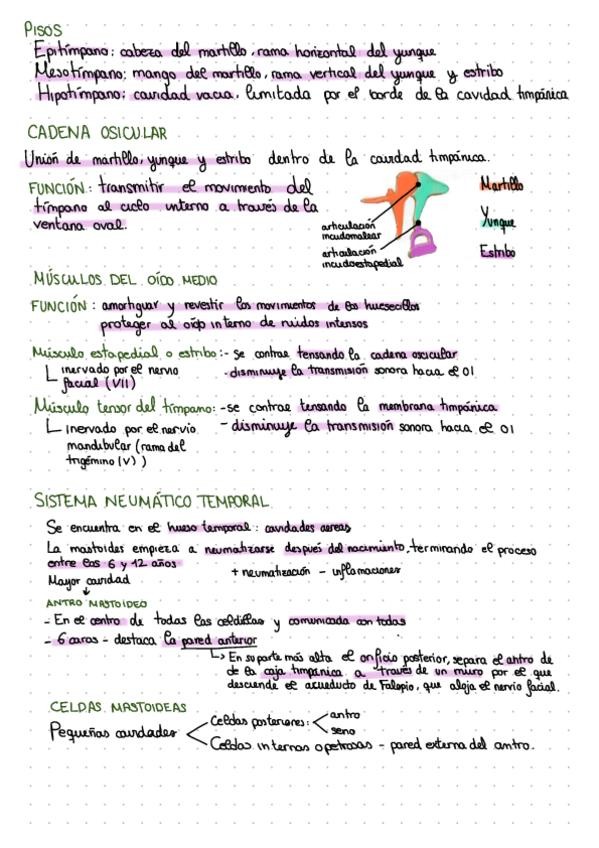 PISOS
Epitímpano: cabeza del martillo, rama horizontal del yunque
Mesotímpano: mango del martillo, rama vertical del yunque y estribo
Hipotímpano: cavidad vacía, limitada por el borde de la cavidad timpánica
CADENA OSICULAR
Unión de martillo, yunque y estribo dentro de la cavidad timpánica.
FUNCIÓN: transmitir el movimiento del
tímpano al ciclo interno a través de la
ventana oval.
articulación
incudomalear
articulación
incudoestapedial
Martillo
Yunque
Estribo
MÚSCULOS DEL OÍDO MEDIO
FUNCIÓN: amortiguar y revestir los movimientos de los huesecillos
proteger al oído interno de ruidos intensos
Músculo estapedial o estribo: - se contrae tensando la cadena osicular
inervado por el nervio
facial (VII)
- disminuye la transmisión sonora hacia el OI
Músculo tensor del tímpano: - se contrae tensando la membrana timpánica
inervado por el nervio
mandibular (rama del
trigémino (V))
- disminuye la transmisión sonora hacia el OI
SISTEMA NEUMÁTICO TEMPORAL
Se encuentra en el hueso temporal: cavidades aereas
La mastoides empieza a neumatizarse después del nacimiento, terminando el proceso
entre los 6 y 12 años
+ neumatización - inflamaciones
Mayor cavidad
↓
ANTRO MASTOIDEO
- En el centro de todas las celdillas y comunicada con todas
- 6 caras - destaca la pared anterior
↳ En su parte más alta el orificio posterior, separa el antro de
de la caja timpánica a través de un muro por el que
desciende el acueducto de Falopio, que aloja el nervio facial.
CELDAS MASTOIDEAS
Pequeñas cavidades
Celdas posteriores:
antro
seno
Celdas internas o petrosas - pared externa del antro.